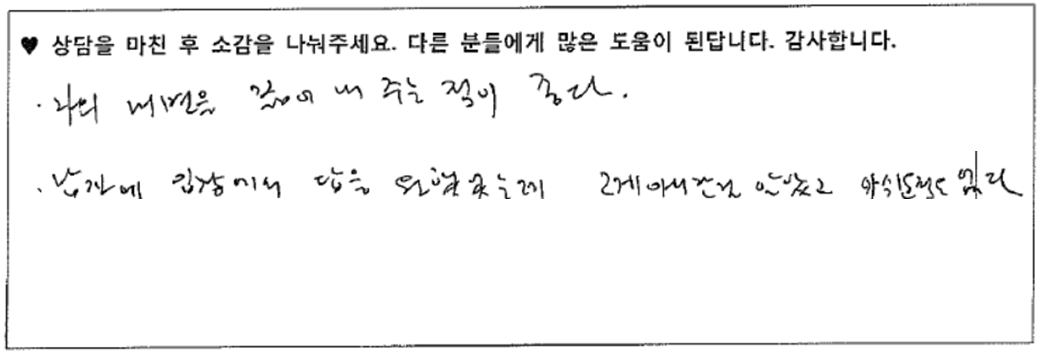 ♥ 상담을 마친 후 소감을 나눠주세요. 다른 분들에게 많은 도움이 된답니다. 감사합니다.
· 나의 내면을 끌어내 주는 점이 좋다.
· 남자에 입장에서 답을 원했었는데 그게 아니란걸 알았고 아쉬운점도 있다